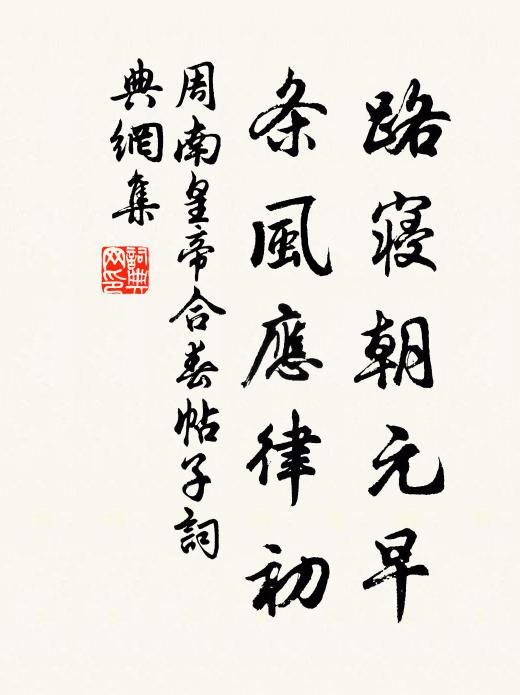 路寢朝元早
条風應律初
周南皇帝合春帖子詞
典網集
詞典网印